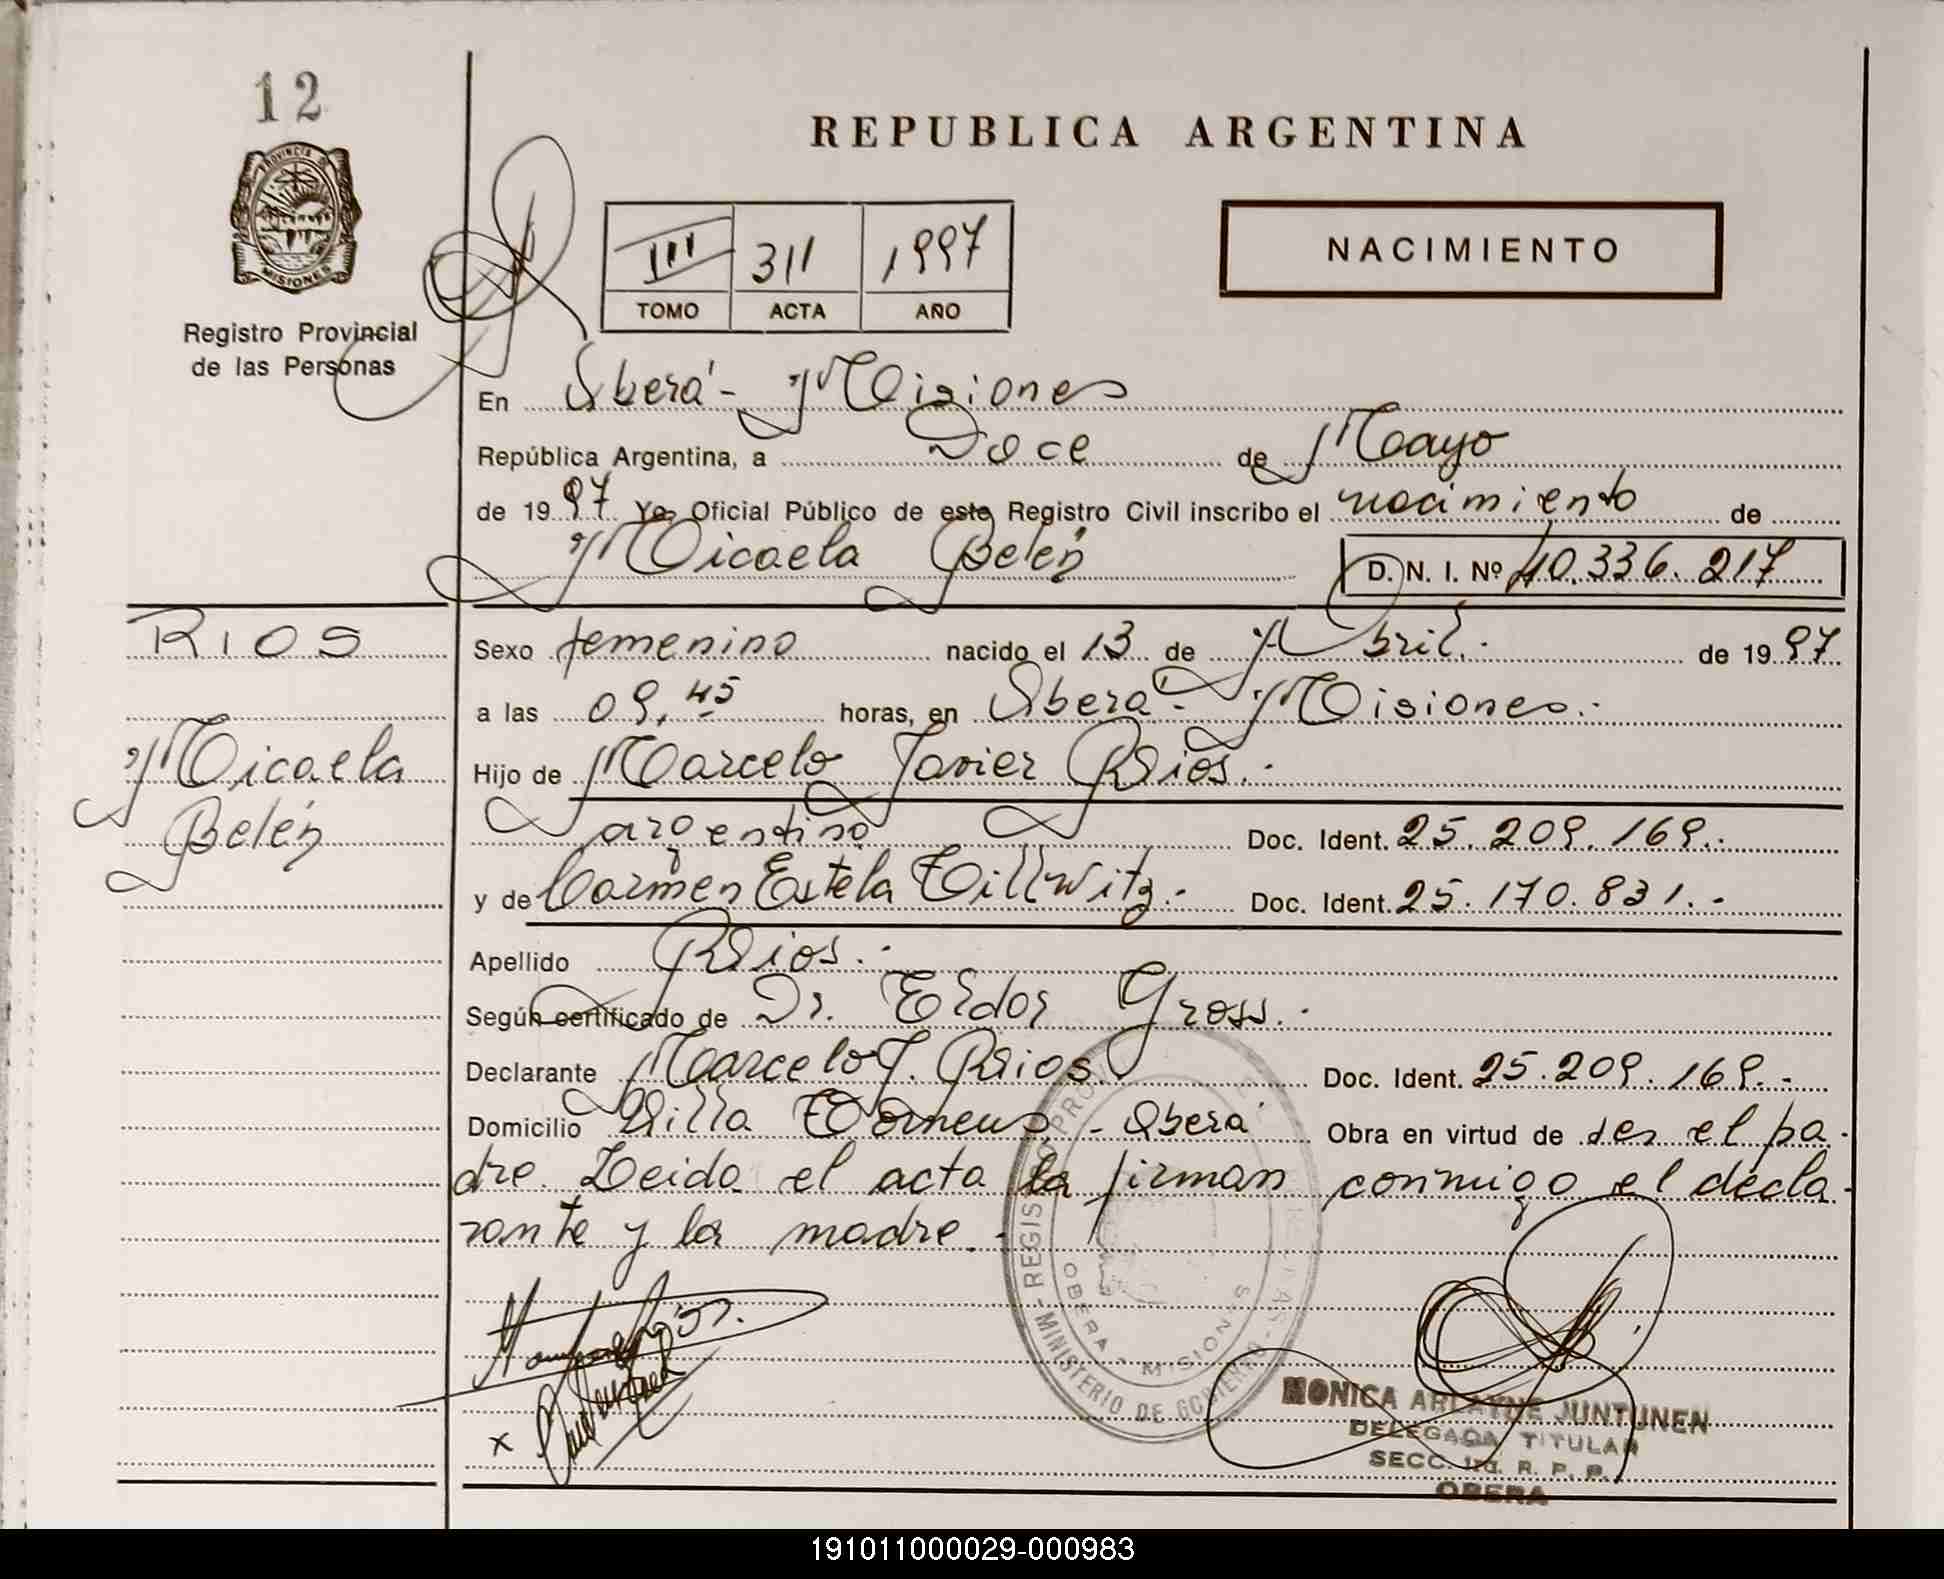 12
REPUBLICA ARGENTINA
PROVINCIA DE
MISIONES
Registro Provincial
de las Personas
III 311 1997
TOMO ACTA AÑO
NACIMIENTO
En Oberá - Misiones
República Argentina, a Doce de Mayo
de 1997 Yo, Oficial Público de este Registro Civil inscribo el nacimiento de
Micaela Belén D. N. I. Nº 40.336.217
RIOS
Micaela
Belén
Sexo femenino nacido el 13 de Abril.- de 1997
a las 09,45 horas, en Oberá - Misiones.-
Hijo de Marcelo Javier Rios.-
argentino Doc. Ident. 25.209.169.-
y de Carmen Estela Tillwitz.- Doc. Ident. 25.170.831.-
Apellido Rios.-
Según certificado de Dr. Eldor Gross.-
Declarante Marcelo J. Rios. Doc. Ident. 25.209.169.-
Domicilio Villa - Oberá Obra en virtud de ser el pa-
dre. Leida el acta la firman conmigo el decla-
rante y la madre.-
- MINISTERIO DE GOBIERNO -
OBERA - MISIONES
x
MONICA ARLAYNE JUNTUNEN
DELEGADA TITULAR
SECC. 1ra. R. P. P.
OBERA
191011000029-000983